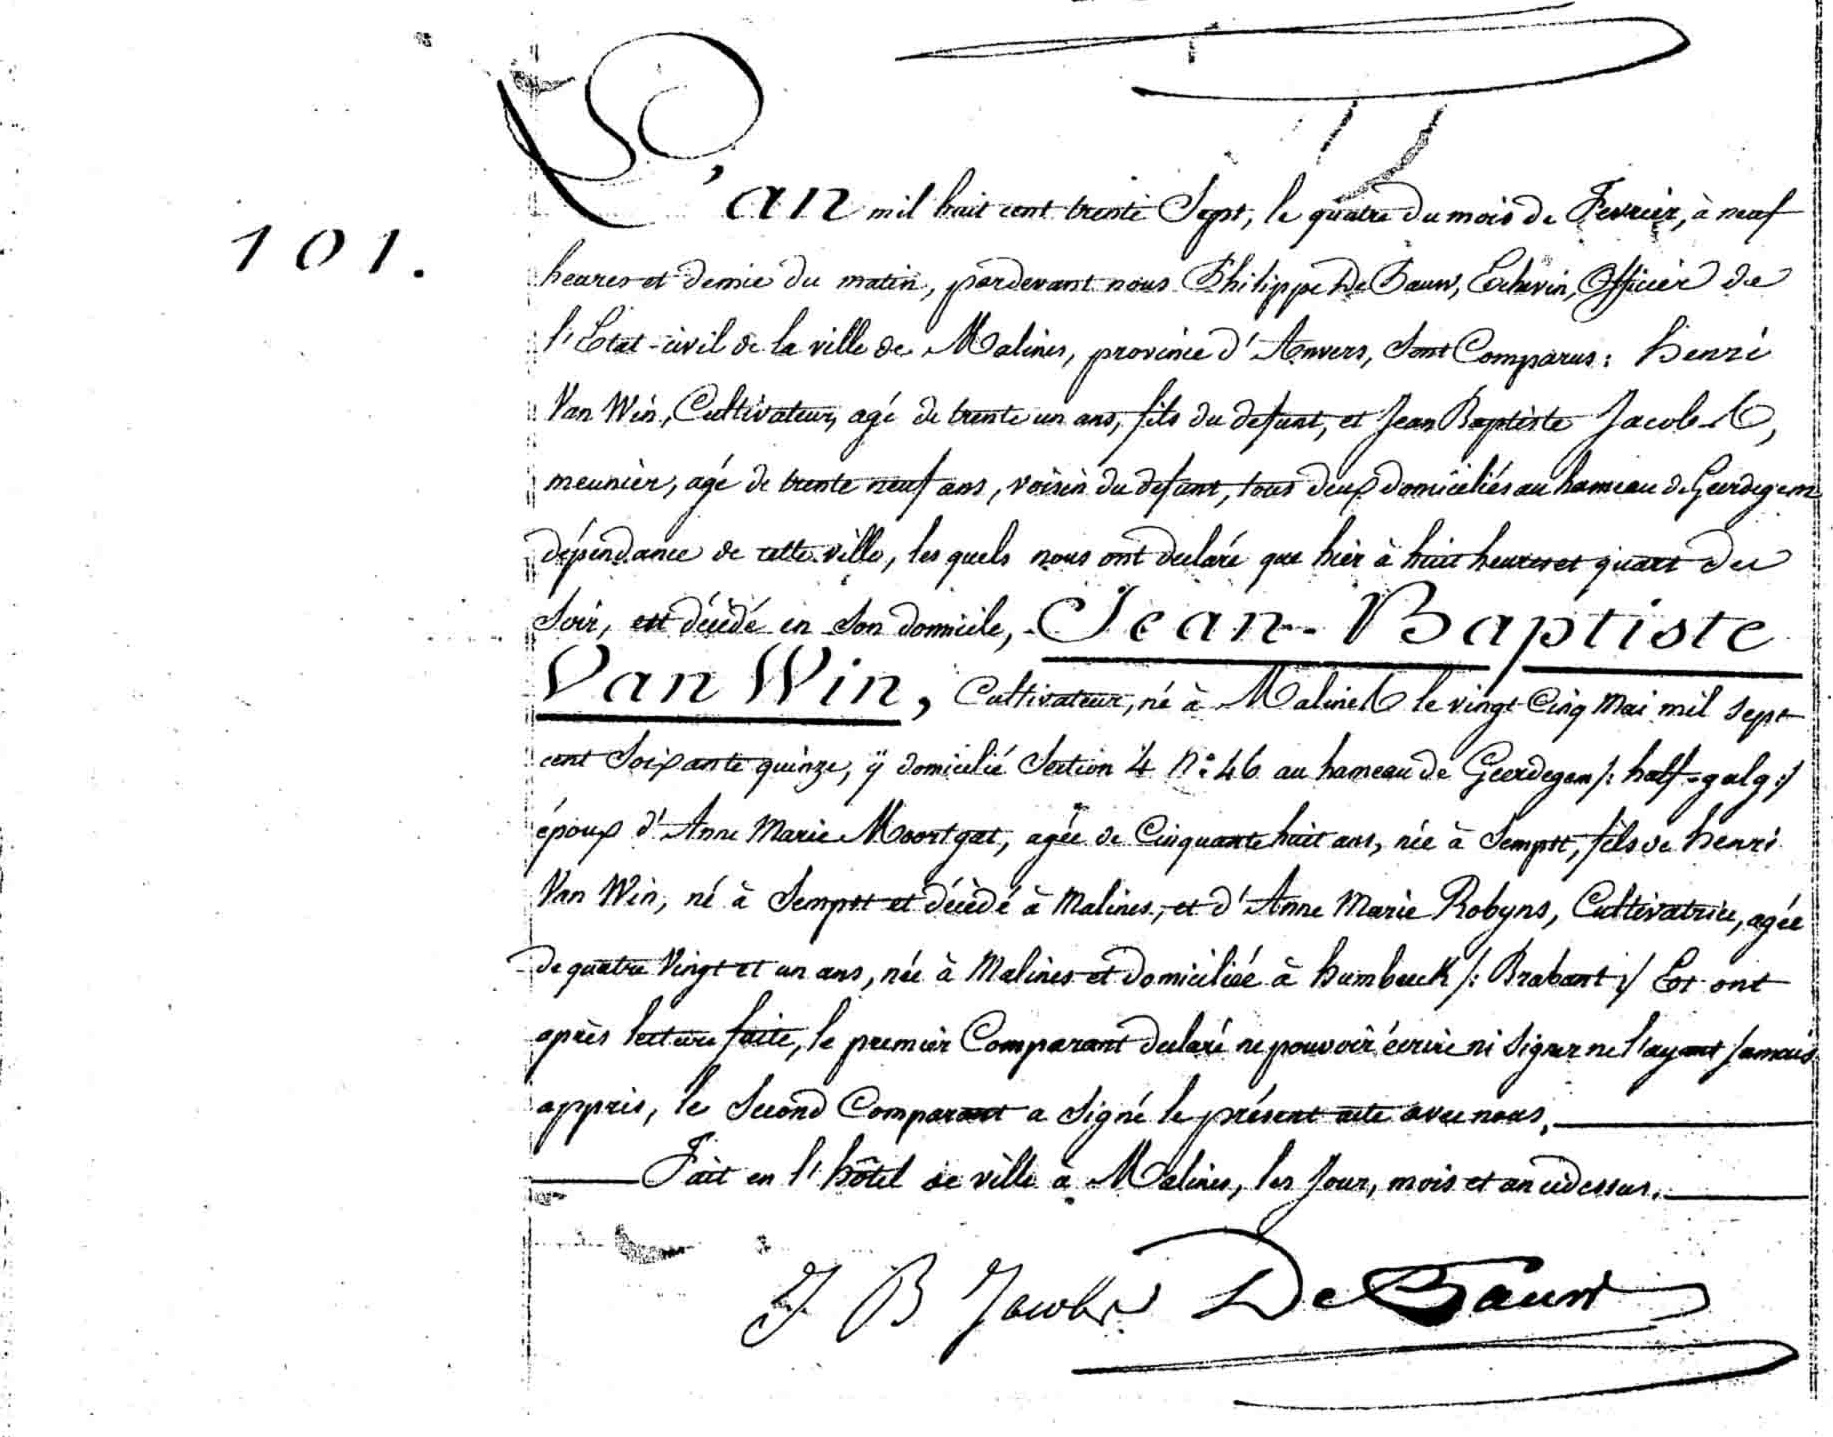 101.
L'an mil huit cent trente Sept, le quatre du mois de Fevrier, à neuf
heures et demie du matin, pardevant nous Philippe De Bauw, Echevin, Officier de
l'Etat-civil de la ville de Malines, province d'Anvers, Sont Comparus: henri
Van Win, Cultivateur, agé de trente un ans, fils du defunt, et Jean Baptiste Jacobs,
meunier, agé de trente neuf ans, voisin du defunt, tous deux domiciliés au hameau de Geerdegem
dépendance de cette ville, les quels nous ont declaré que hier à huit heures et quart du
Soir, est décédé en Son domicile, Jean-Baptiste
Van Win, Cultivateur, né à Malines le vingt Cinq Mai mil sept
cent Soixante quinze, ÿ domicilié Section 4 N.º 46 au hameau de Geerdegem /: half-galg :/
époux d'Anne Marie Moortgat, agée de Cinquante huit ans, née à Sempst, fils de henri
Van Win, né à Sempst et décédé à Malines, et d'Anne Marie Robyns, Cultivatrice, agée
de quatre Vingt et un ans, née à Malines et domiciliée à humbeeck /: Brabant :/ Et ont
après lecture faite, le premier Comparant declaré ne pouvoir écrire ni Signer ne l'ayant Jamais
appris, le Second Comparant a Signé le présent acte avec nous.
Fait en l'hôtel de ville à Malines, les Jour, mois et an cidessus.
J B Jacobs De Bauw